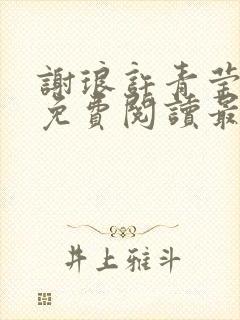 謝琅許青莹
免費閱讀最
井上雅斗